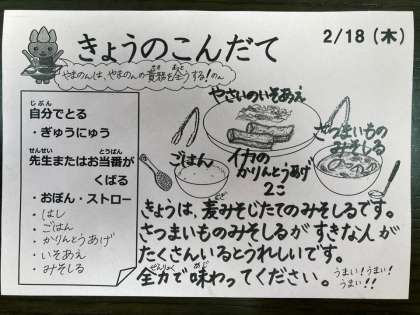 きょうのこんだて
2/18（木）
やまのんは、やまのんの責務を全うする！のん
自分でとる
・ぎゅうにゅう
先生またはお当番が
くばる
・おぼん・ストロー
・はし
・ごはん
・かりんとうあげ
・いそあえ
・みそしる
やさいのいそあえ
ごはん
イカの
かりんとうあげ
2こ
さつまいもの
みそしる
きょうは、麦みそじたてのみそしるです。
さつまいものみそしるがすきな人が
たくさんいるとうれしいです。
全力で味わってください。
うまい！うまい！
うまい！！